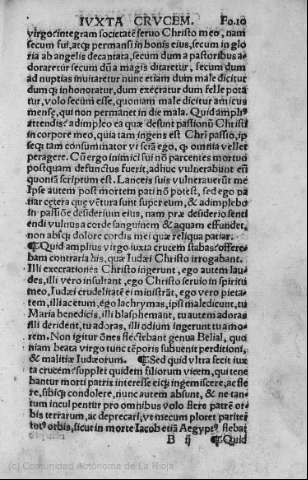 IVXTA CRVCEM. Fo.10
virgo integram societatẽ seruo Christo meo, nam
secum fui, atq̃ permansi in bonis eius, secum in glo
ria ab angelis decantata, secum dum a pastoribus a
doraretur secum dũ a magis ditaretur, secum dum
ad nuptias inuitaretur nunc etiam dum male dicitur
dum q̃ inhonoratur, dum execratur dum felle pota
tur, volo secum esse, quoniam male dicitur amicus
mense, qui non permanet in die mala. Quid amplius
attendis: adimpleo ea quæ desunt passionũ Christi
in corpore meo, quia tam ingens est Chri passio, ip
seq; tam consummator vt sciã ego, q̃ omnia vellet
peragere. Cũ ergo inimici sui nõ parcentes mortuo
postquam defunctus fuerit, adhuc vulnerabunt eum
quonã scriptum est. Lanceis suis vulnerauerũt me
Ipse autem post mortem pati nõ potest, sed ego pa
tiar cetera que vẽtura sunt super eum, & adimplebo
in passiõe desiderium eius, nam præ desiderio senti
endi vulnus a corde sanguinem & aquam effundet,
non absq; dolore cordis mei quæ reliqua patiar.
¶Quid amplius virgo iuxta crucem stabas? offere
bam contraria his, quæ Iudæi Christo irrogabant.
Illi execrationes Christo ingerunt, ego autem lau
des, illi vero insultant, ego Christo seruio in spiritu
meo, Iudæi crudelitatẽ ei ministrãt, ego vero pieta
tem, illi acetum, ego lachrymas, ipsi maledicunt, tu
Maria benedicis, illi blasphemant, tu autem adoras
illi derident, tu adoras, illi odium ingerunt tu amo
rem. Non igitur õnes flectebant genua Belial, quo
niam beata virgo tunc tẽporis subuenit perditioni,
& malitiæ Iudæorum. ¶Sed quid vltra fecit iux
ta crucem? supplet quidem filiorum vicem, qui tene
bantur morti patris interesse eiq; ingemiscere, ac fle
re, sibiq; condolere, nunc autem absunt, & ne tan
tum inculpentur pro omnibus volo flere patrẽ or
bis terrarum, ac deprecari, vt mecum ploret pariter
totº orbis, sicut in morte Iacob etiã Aegyptº flebat
B ij ¶Quid
(c) Comunidad Autónoma de La Rioja